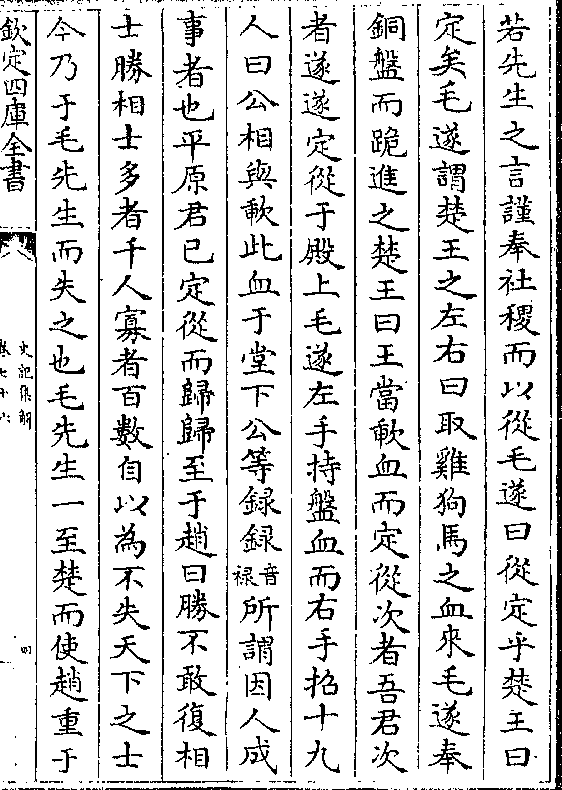 若先生之言謹奉社稷而以從毛遂曰從定乎楚王曰
定矣毛遂謂楚王之左右曰取雞狗馬之血來毛遂奉
銅盤而跪進之楚王曰王當歃血而定從次者吾君次
者遂遂定從于殿上毛遂左手持盤血而右手招十九
人曰公相與歃此血于堂下公等録録音禄所謂因人成
事者也平原君已定從而歸歸至于趙曰勝不敢復相
士勝相士多者千人寡者百數自以為不失天下之士
今乃于毛先生而失之也毛先生一至楚而使趙重于
欽定四庫全書
史記集解
卷七十六
四